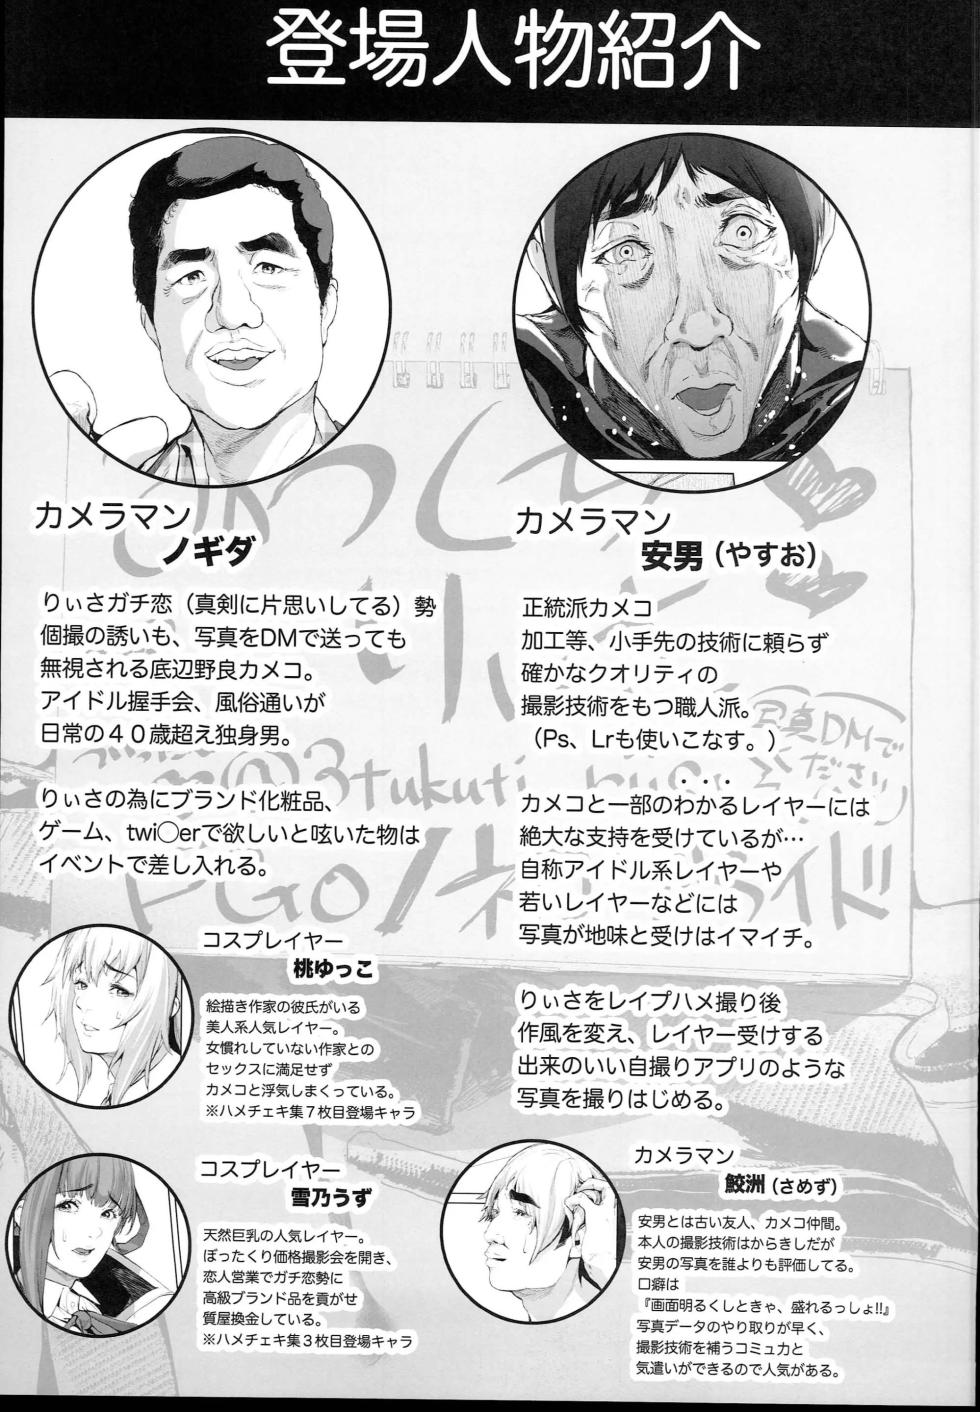 登場人物紹介
カメラマン
ノギダ
りぃさガチ恋（真剣に片思いしてる）勢
個撮の誘いも、写真をDMで送っても
無視される底辺野良カメコ。
アイドル握手会、風俗通いが
日常の４０歳超え独身男。
りぃさの為にブランド化粧品、
ゲーム、twi◯erで欲しいと呟いた物は
イベントで差し入れる。
カメラマン
安男（やすお）
正統派カメコ
加工等、小手先の技術に頼らず
確かなクオリティの
撮影技術をもつ職人派。
（Ps、Lrも使いこなす。）
カメコと一部のわかるレイヤーには
絶大な支持を受けているが…
自称アイドル系レイヤーや
若いレイヤーなどには
写真が地味と受けはイマイチ。
りぃさをレイプハメ撮り後
作風を変え、レイヤー受けする
出来のいい自撮りアプリのような
写真を撮りはじめる。
コスプレイヤー
桃ゆっこ
絵描き作家の彼氏がいる
美人系人気レイヤー。
女慣れしていない作家との
セックスに満足せず
カメコと浮気しまくっている。
※ハメチェキ集７枚目登場キャラ
コスプレイヤー
雪乃うず
天然巨乳の人気レイヤー。
ぼったくり価格撮影会を開き、
恋人営業でガチ恋勢に
高級ブランド品を貢がせ
質屋換金している。
※ハメチェキ集３枚目登場キャラ
カメラマン
鮫洲（さめず）
安男とは古い友人、カメコ仲間。
本人の撮影技術はからきしだが
安男の写真を誰よりも評価してる。
口癖は
『画面明るくしときゃ、盛れるっしょ!!』
写真データのやり取りが早く、
撮影技術を補うコミュ力と
気遣いができるので人気がある。
写真DMで
ください
@3tukuti